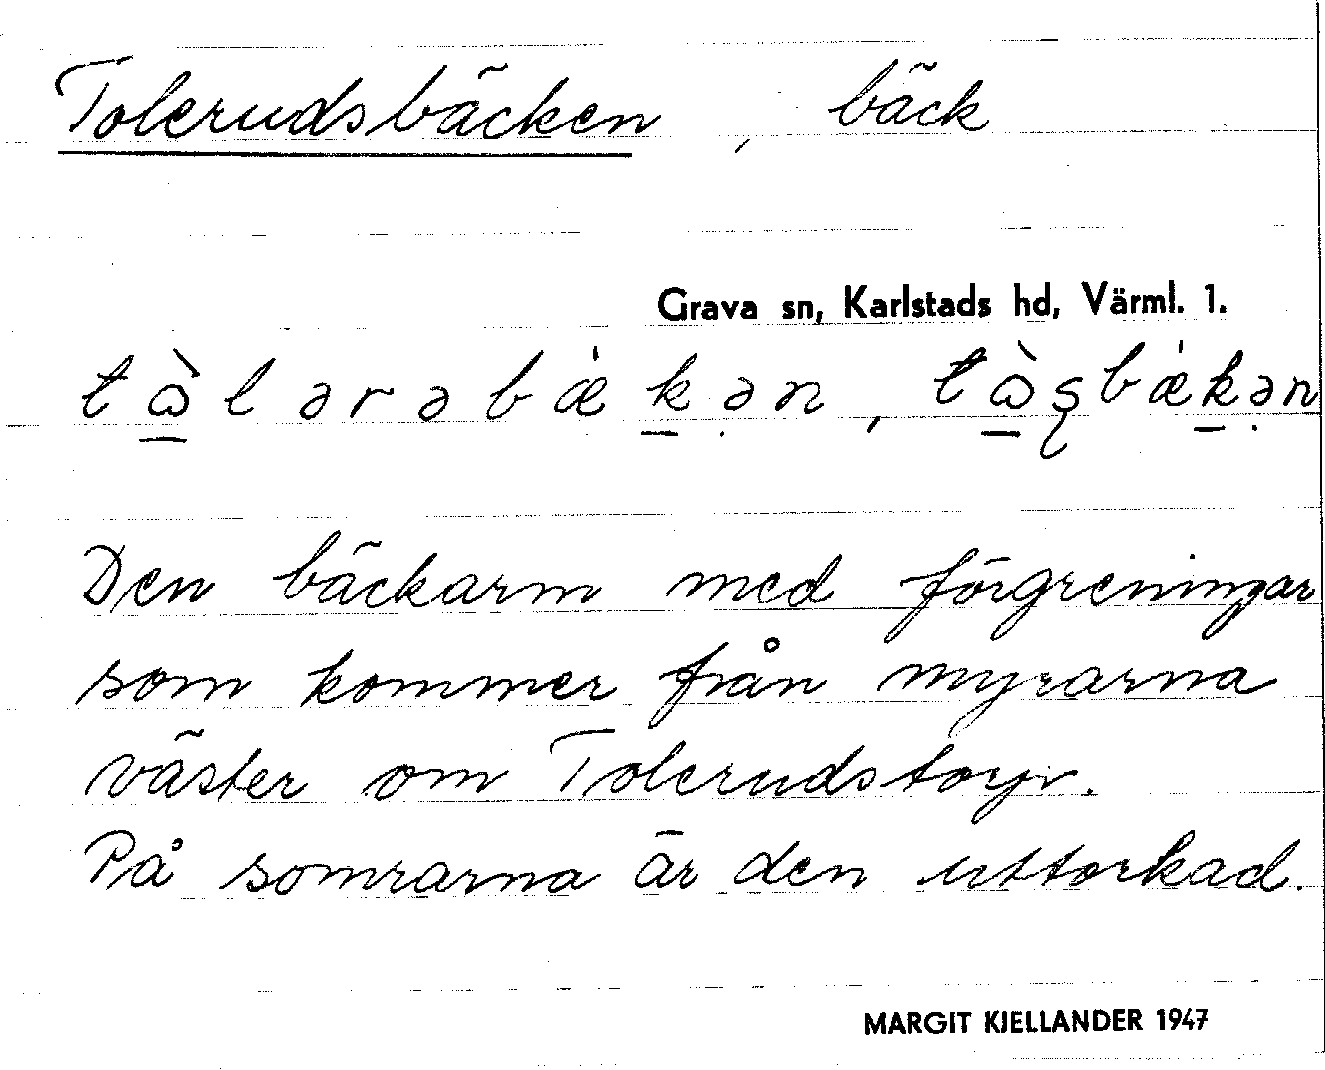 Tolerudsbäcken, bäck
Grava sn, Karlstads hd, Värml. 1.
tɷ̀lərəbǽkən, tɷ̀ʂbǽkən
Den bäckarm med förgreningar
som kommer från myrarna
väster om Tolerudstorp.
På somrarna är den uttorkad.
MARGIT KJELLANDER 1947